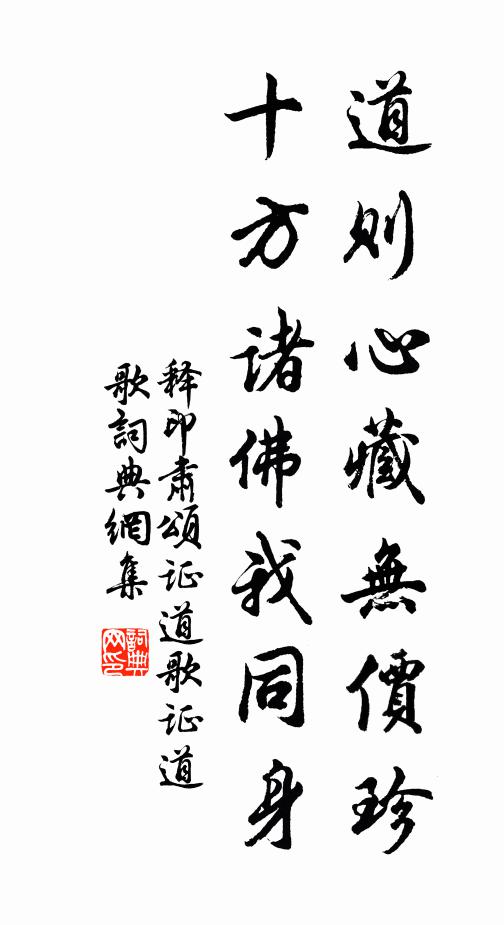 道则心藏無價珍
十方諸佛我同身
释印肃頌证道歌证道
歌詞典網集
詞典網印